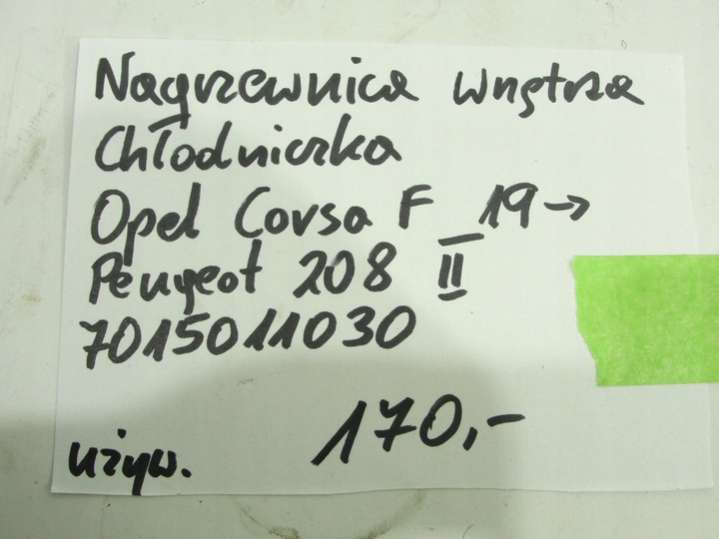 Nagrzewnica wnętrza
Chłodniczka
Opel Corsa F 19→
Peugeot 208 II
7015011030
170,-
używ.